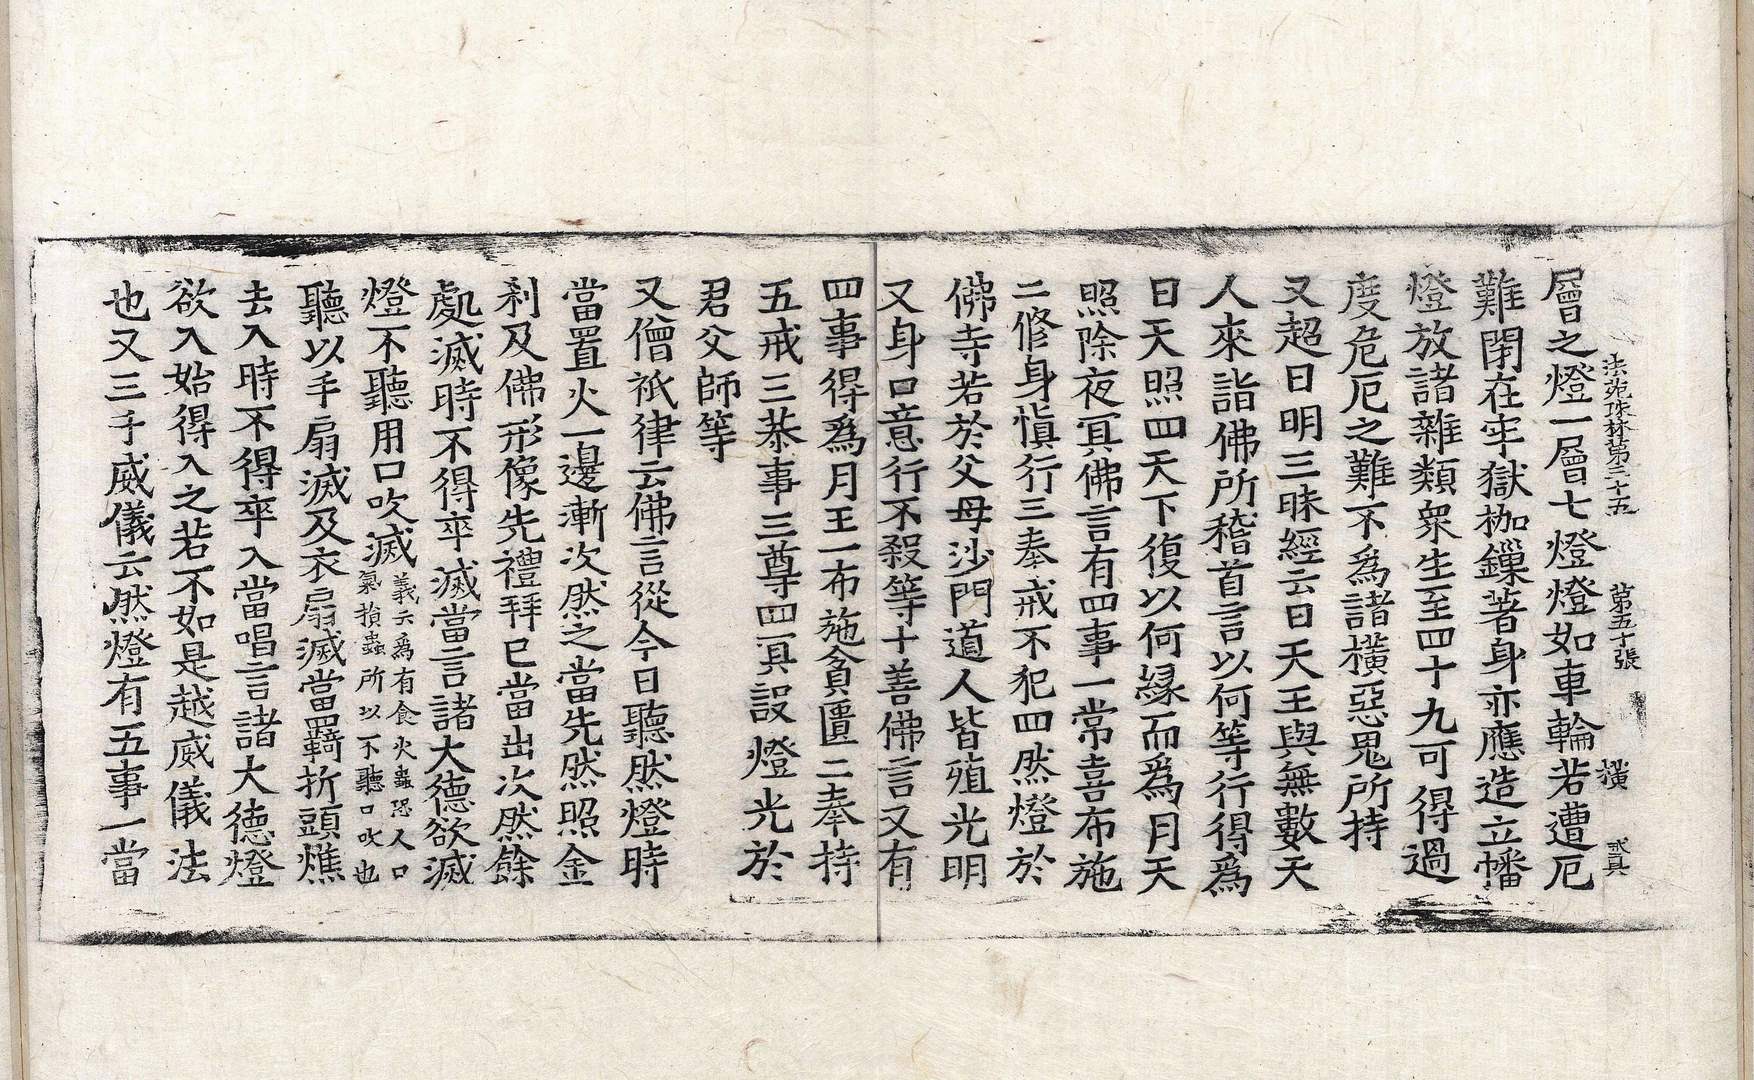 法苑珠林第三十五　第五十張　横　弍真
層之燈一層七燈燈如車輪若遭厄
難閉在牢獄枷鏁著身亦應造立幡
燈放諸雜類衆生至四十九可得過
度危厄之難不爲諸橫惡鬼所持
又超日明三昧經云日天王與無數天
人來詣佛所稽首言以何等行得爲
日天照四天下復以何緣而爲月天
照除夜冥佛言有四事一常喜布施
二修身愼行三奉戒不犯四然燈於
佛寺若於父母沙門道人皆殖光明
又身口意行不殺等十善佛言又有
四事得爲月王一布施貧匱二奉持
五戒三恭事三尊四冥設燈光於
君父師等
又僧祇律云佛言從今日聽然燈時
當置火一邊漸次然之當先然照金
刹及佛形像先禮拜已當出次然餘
處滅時不得卒滅當言諸大德欲滅
燈不聽用口吹滅義云爲有食火蟲恐人口氣損蟲所以不聽口吹也
聽以手扇滅及衣扇滅當羇折頭燋
去入時不得卒入當唱言諸大德燈
欲入始得入之若不如是越威儀法
也又三千威儀云然燈有五事一當